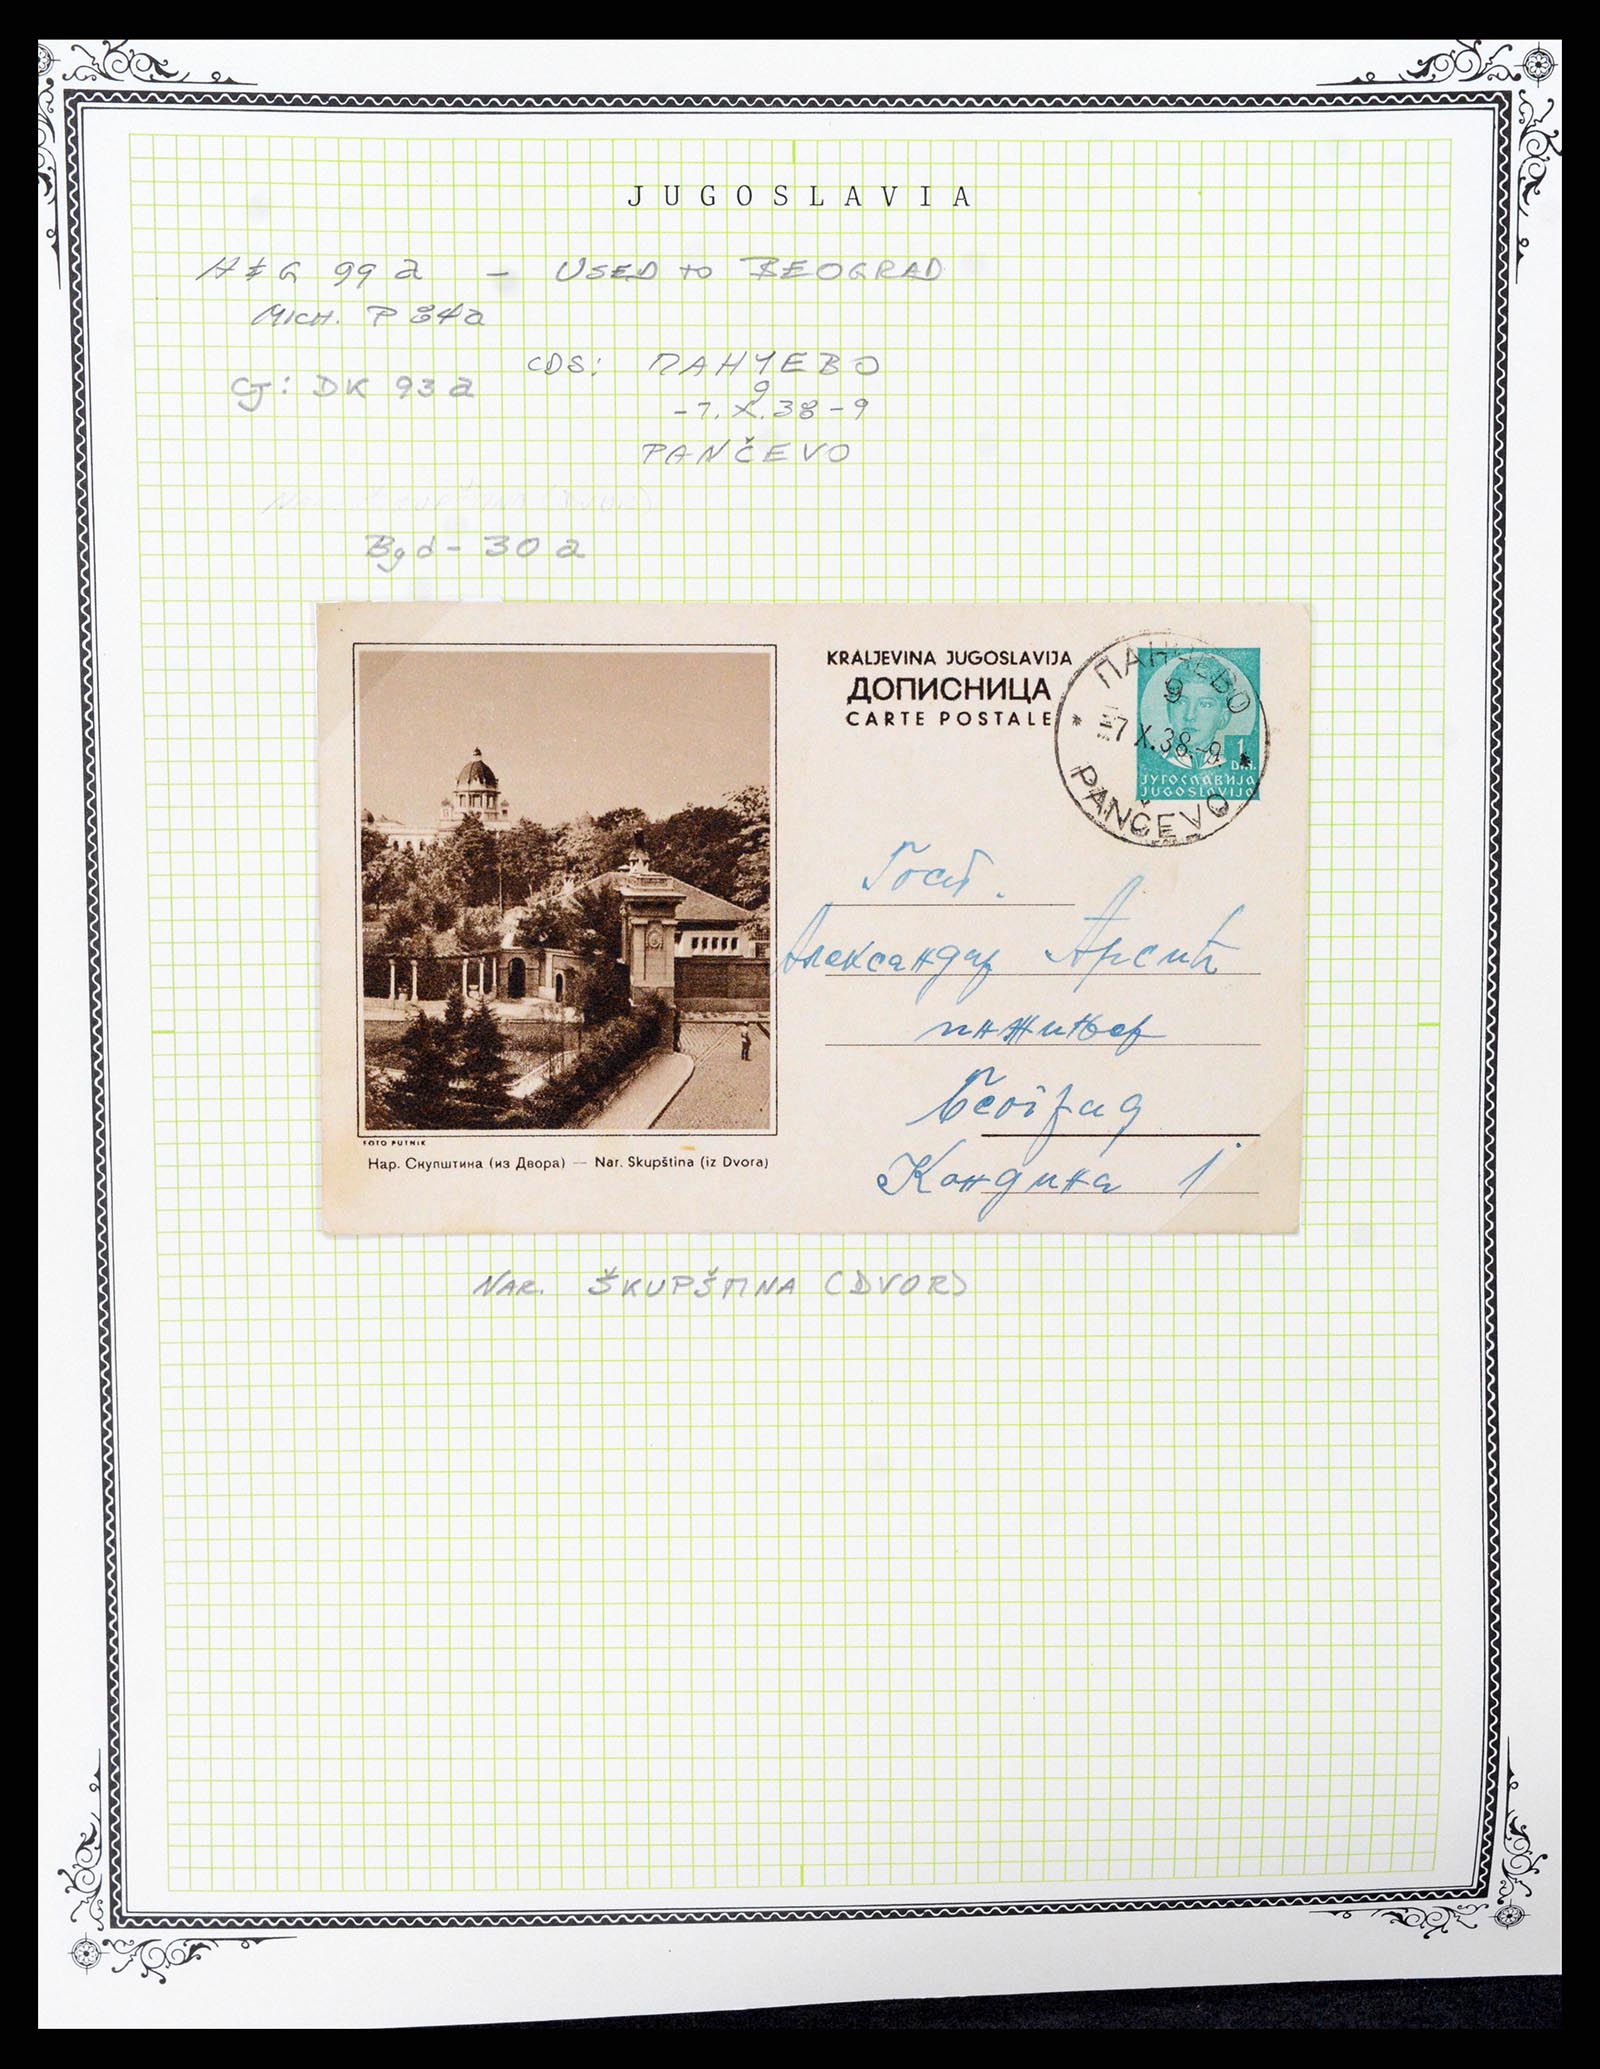 JUGOSLAVIA
H & G 99 a – USED TO BEOGRAD
MICH. P 84a
CDS: ПАНЧЕВО
CJ: DK 93 a
9
-7. X. 38 - 9
PANČEVO
NAR. ŠKUPŠTINA (DVOR)
Bgd - 30 a
KRALJEVINA JUGOSLAVIJA
ДОПИСНИЦА
CARTE POSTALE
ПАНЧЕВО
9
-7 X.38.-9.
PANČEVO
1
DIN.
ЈУГОСЛАВИЈА
JUGOSLAVIJA
Госп.
Александар Арсић
инжињер
Београд
Кондина 1
FOTO PUTNIK
Нар. Скупштина (из Двора) — Nar. Skupština (iz Dvora)
NAR. ŠKUPŠTINA (DVOR)